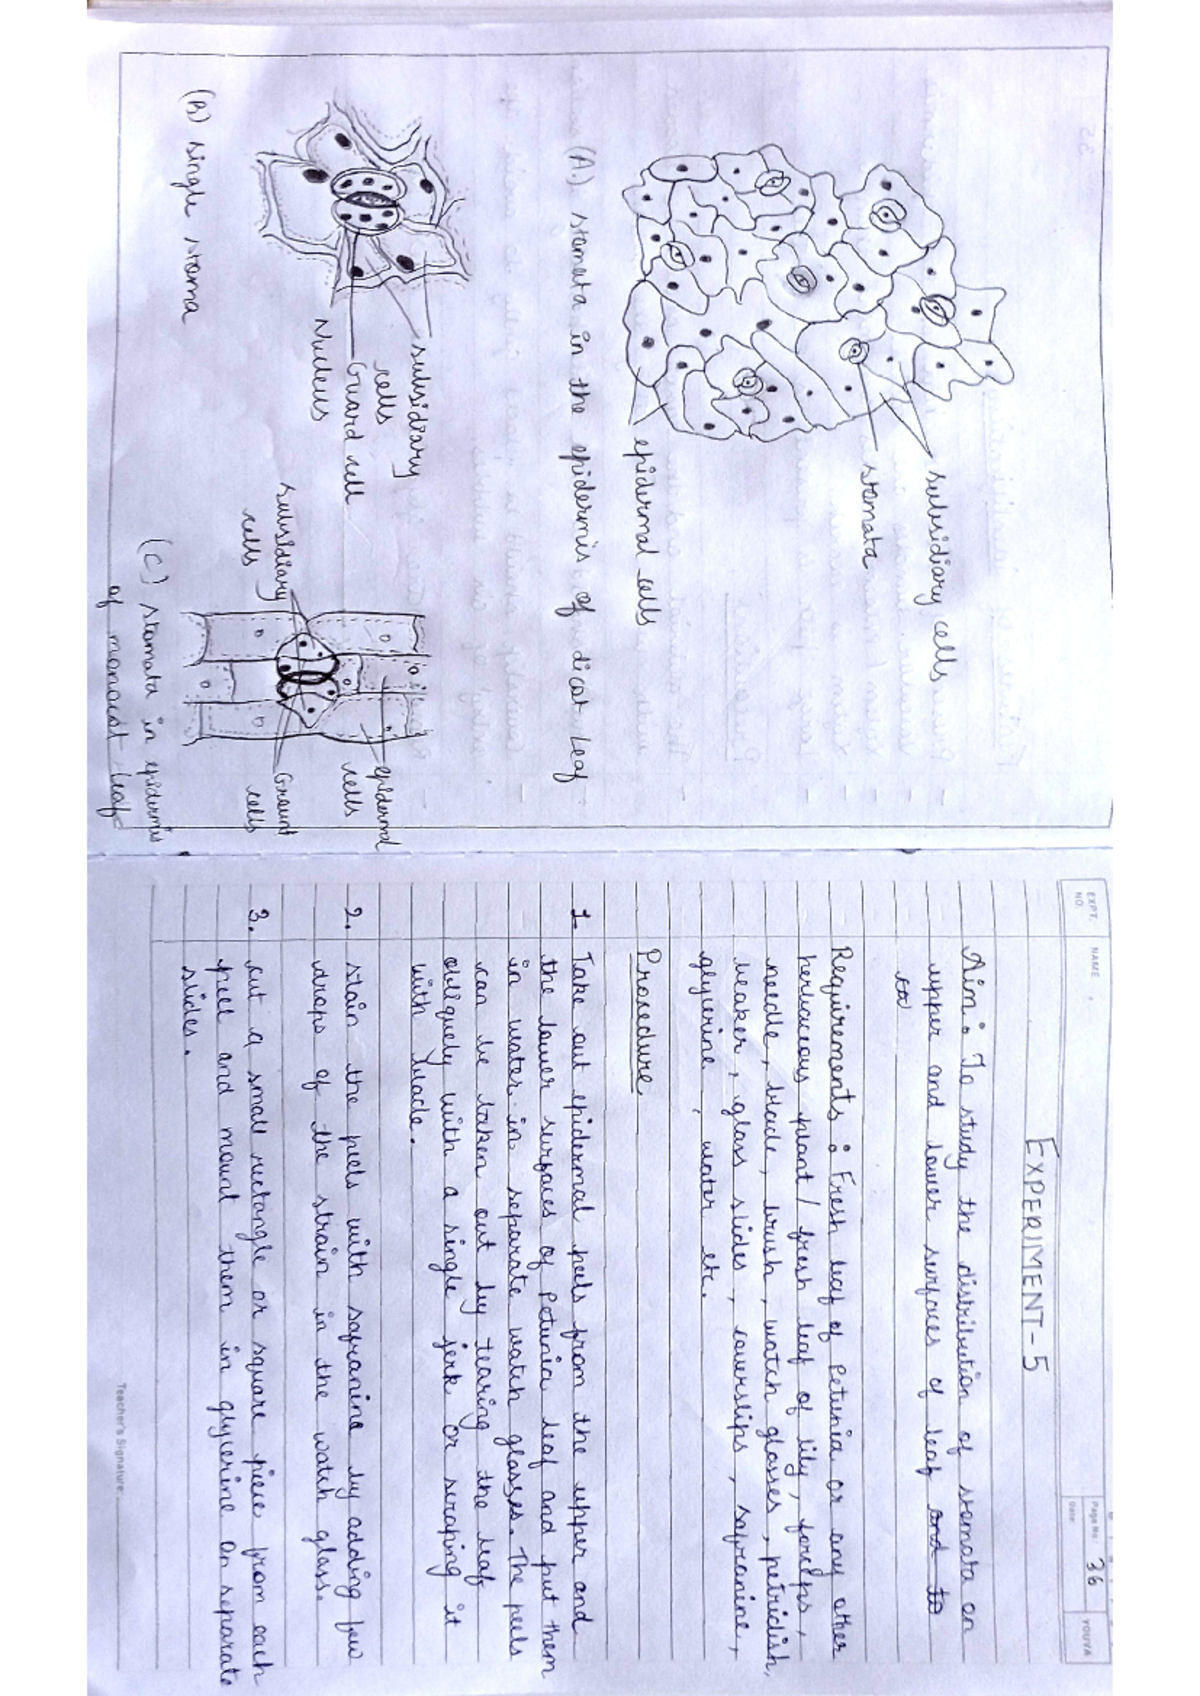 subsidiary cells
stomata
epidermal cells
(A.) stomata in the epidermis of dicot leaf
subsidiary
cells
Guard cell
Nucleus
(B) single stoma
subsidiary
cells
epidermal
cells
Graunt
cells
(C) stomata in epidermis
of monocot leaf
EXPT. NO.
NAME
Page No: 36
Date:
YOUVA
EXPERIMENT-5
Aim: To study the distribution of stomata on
upper and lower surfaces of leaf and to
Requirements: Fresh leaf of Petunia or any other
herbaceous plant/ fresh leaf of lily, forceps,
needle, blade, brush, watch glasses, petridish,
beaker, glass slides, coverslips, safranine,
glycerine, water etc.
Prosedure
1. Take out epidermal peels from the upper and
the lower surfaces of Petunia leaf and put them
in water in separate watch glasses. The peels
can be taken out by tearing the leaf
obliquely with a single jerk or scraping it
with blade.
2. stain the peels with safranine by adding few
drops of the strain in the watch glass.
3. cut a small rectangle or square piece from each
peel and mount them in glycerine on separate
slides.
Teacher's Signature: